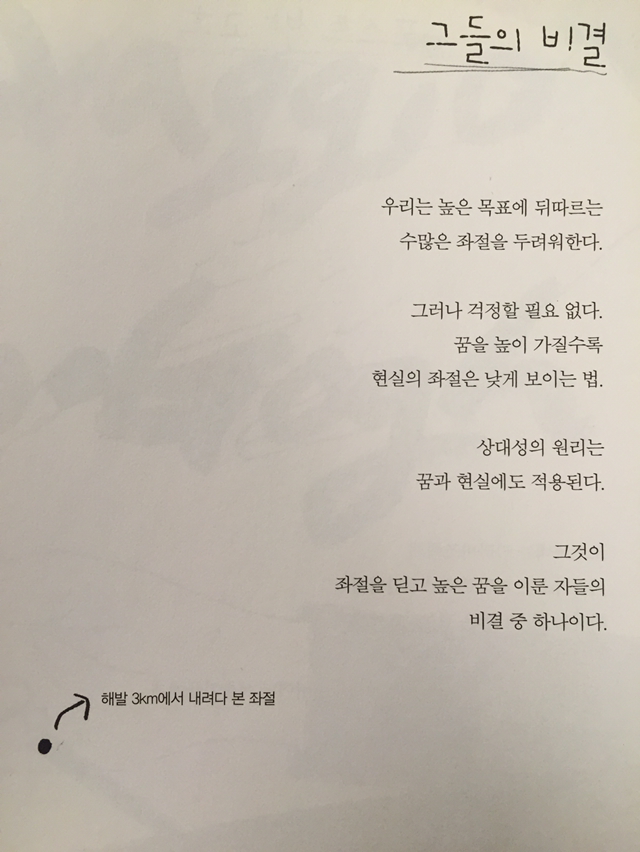 그들의 비결
우리는 높은 목표에 뒤따르는
수많은 좌절을 두려워한다.
그러나 걱정할 필요 없다.
꿈을 높이 가질수록
현실의 좌절은 낮게 보이는 법.
상대성의 원리는
꿈과 현실에도 적용된다.
그것이
좌절을 딛고 높은 꿈을 이룬 자들의
비결 중 하나이다.
해발 3km에서 내려다 본 좌절